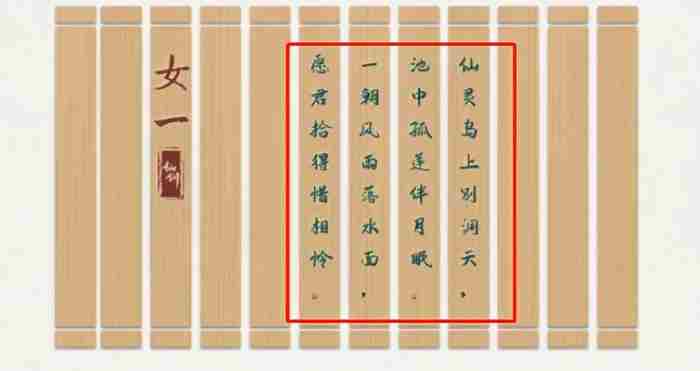 仙灵岛上别洞天，
池中孤莲伴月眠。
一朝风雨落水面，
愿君拾得惜相怜。
女一
仙剑